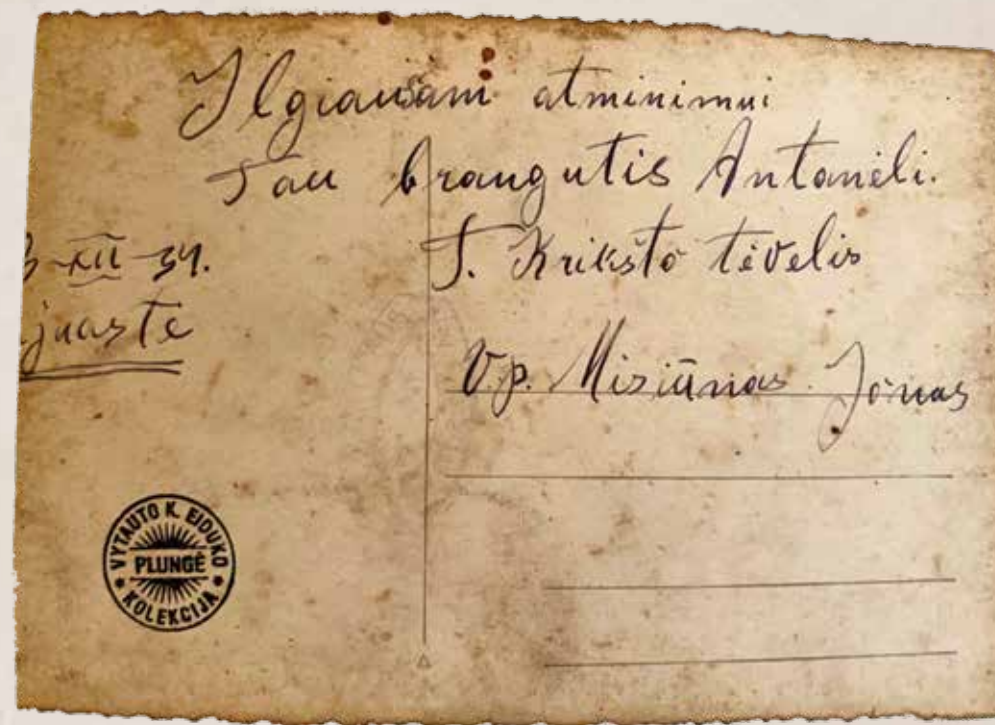 Ilgiausiam atminimui
Tau brangutis Antanėli.
T. Krikšto tėvelis
V.p. Misiūnas Jonas
3-XII-34.
VYTAUTO K. EIDUKO
PLUNGĖ
KOLEKCIJA